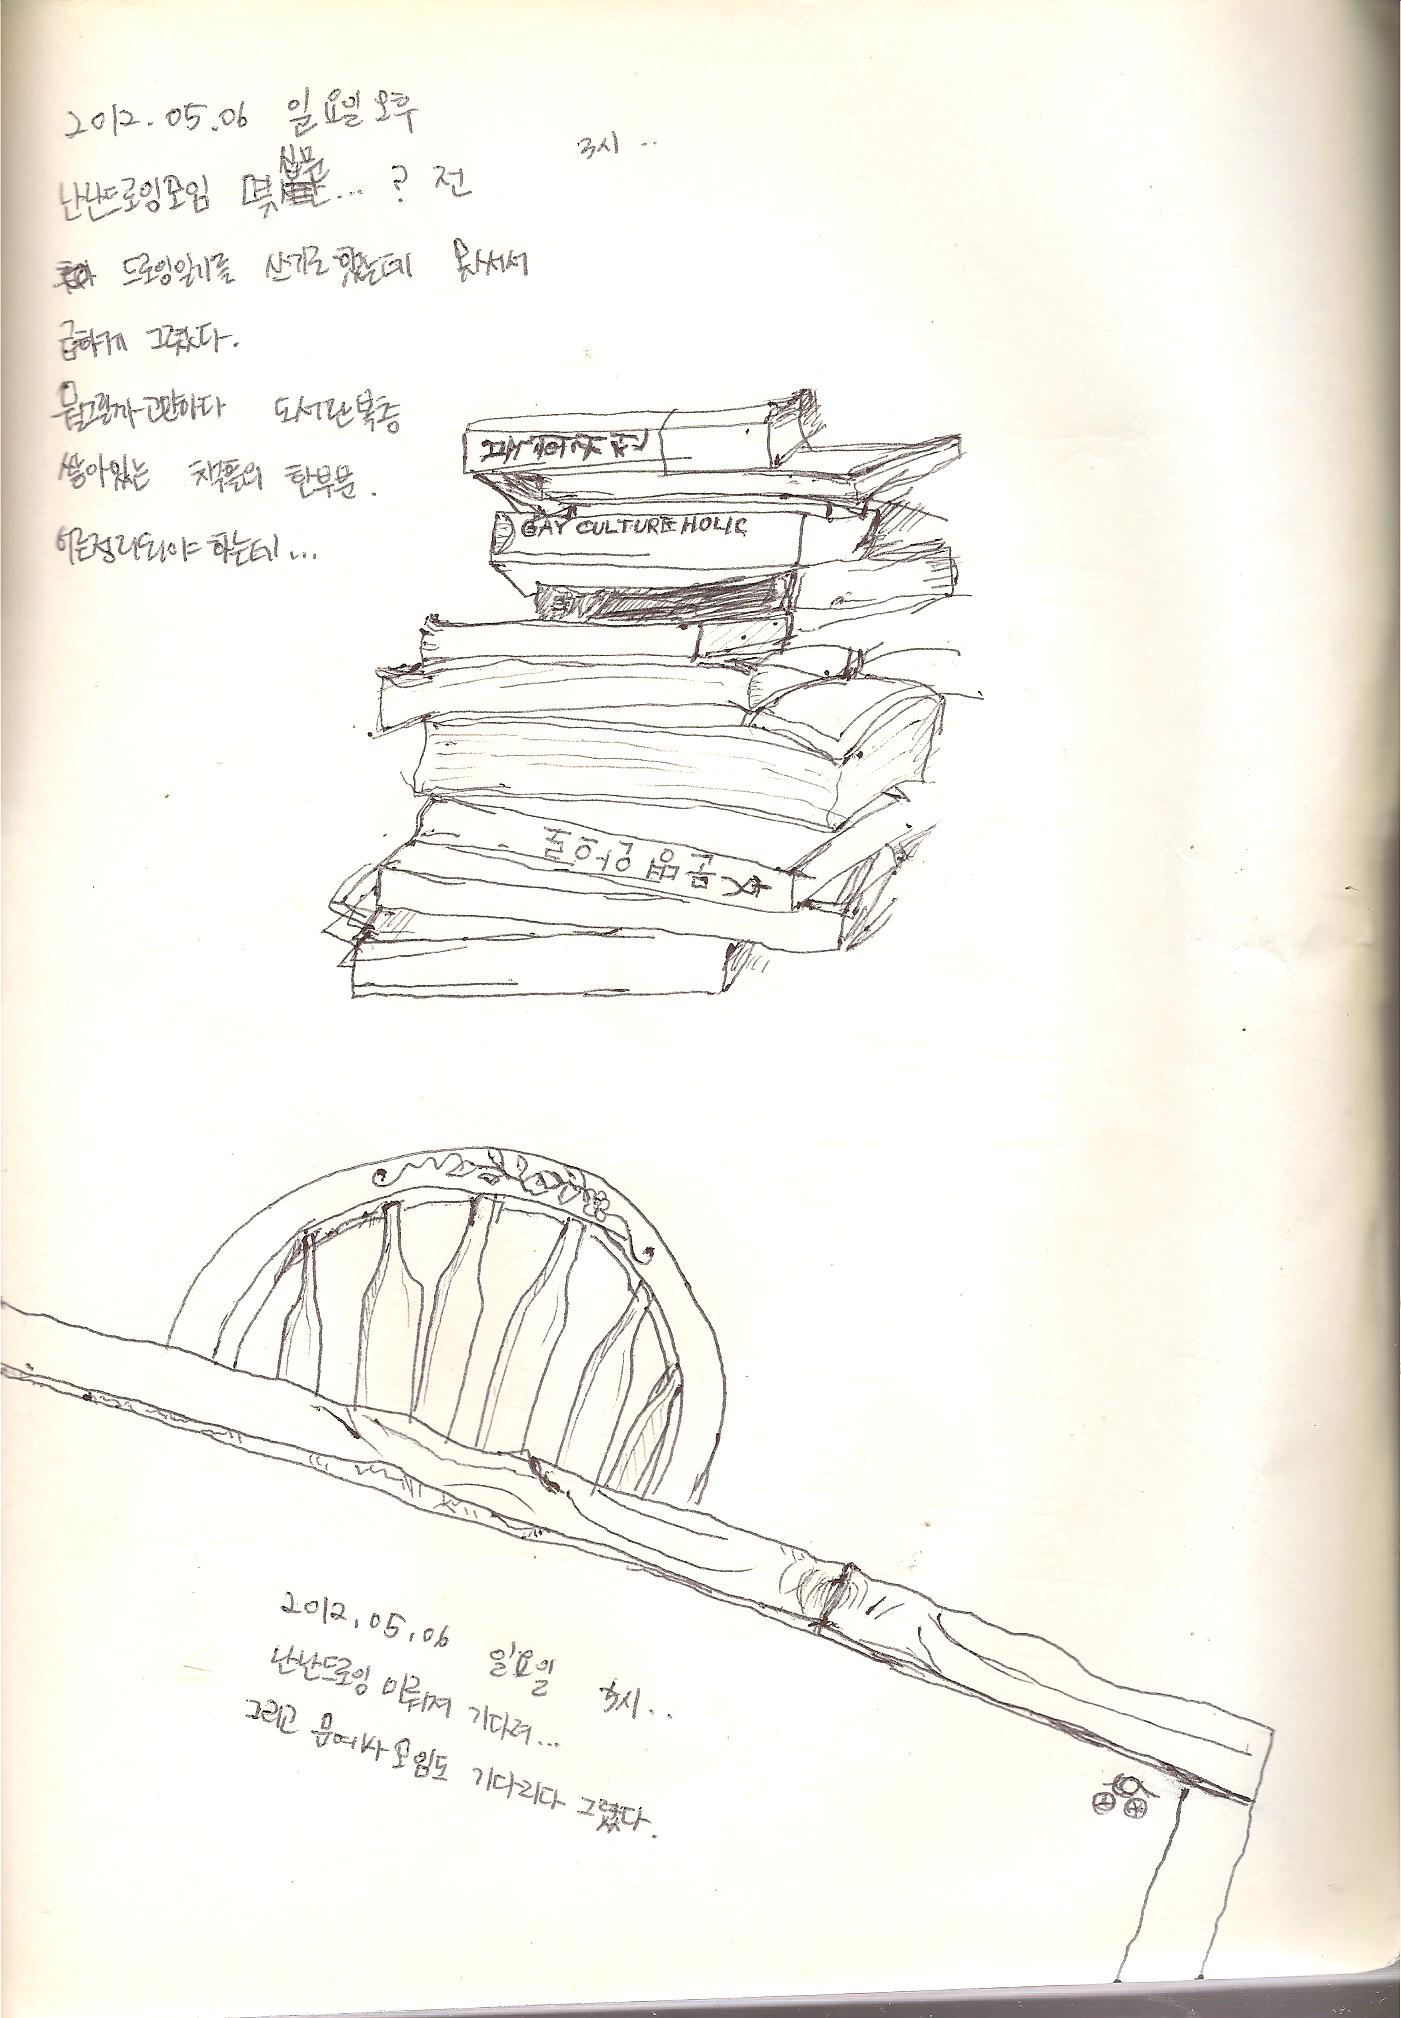 2012.05.06 일요일 오후
3시..
난난드로잉모임 몇십분... ? 전
드로잉일기를 산기로 했는데 못사서
급하게 그렸다.
뭘그릴까 고민하다 도서관 복층
쌓아있는 책들의 한부분.
정리되야 하는데...
GAY CULTURE HOLIC
2012.05.06 일요일 3시..
난난드로잉 미뤄져 기다려...
그리고 문여사 모임도 기다리다 그렸다.